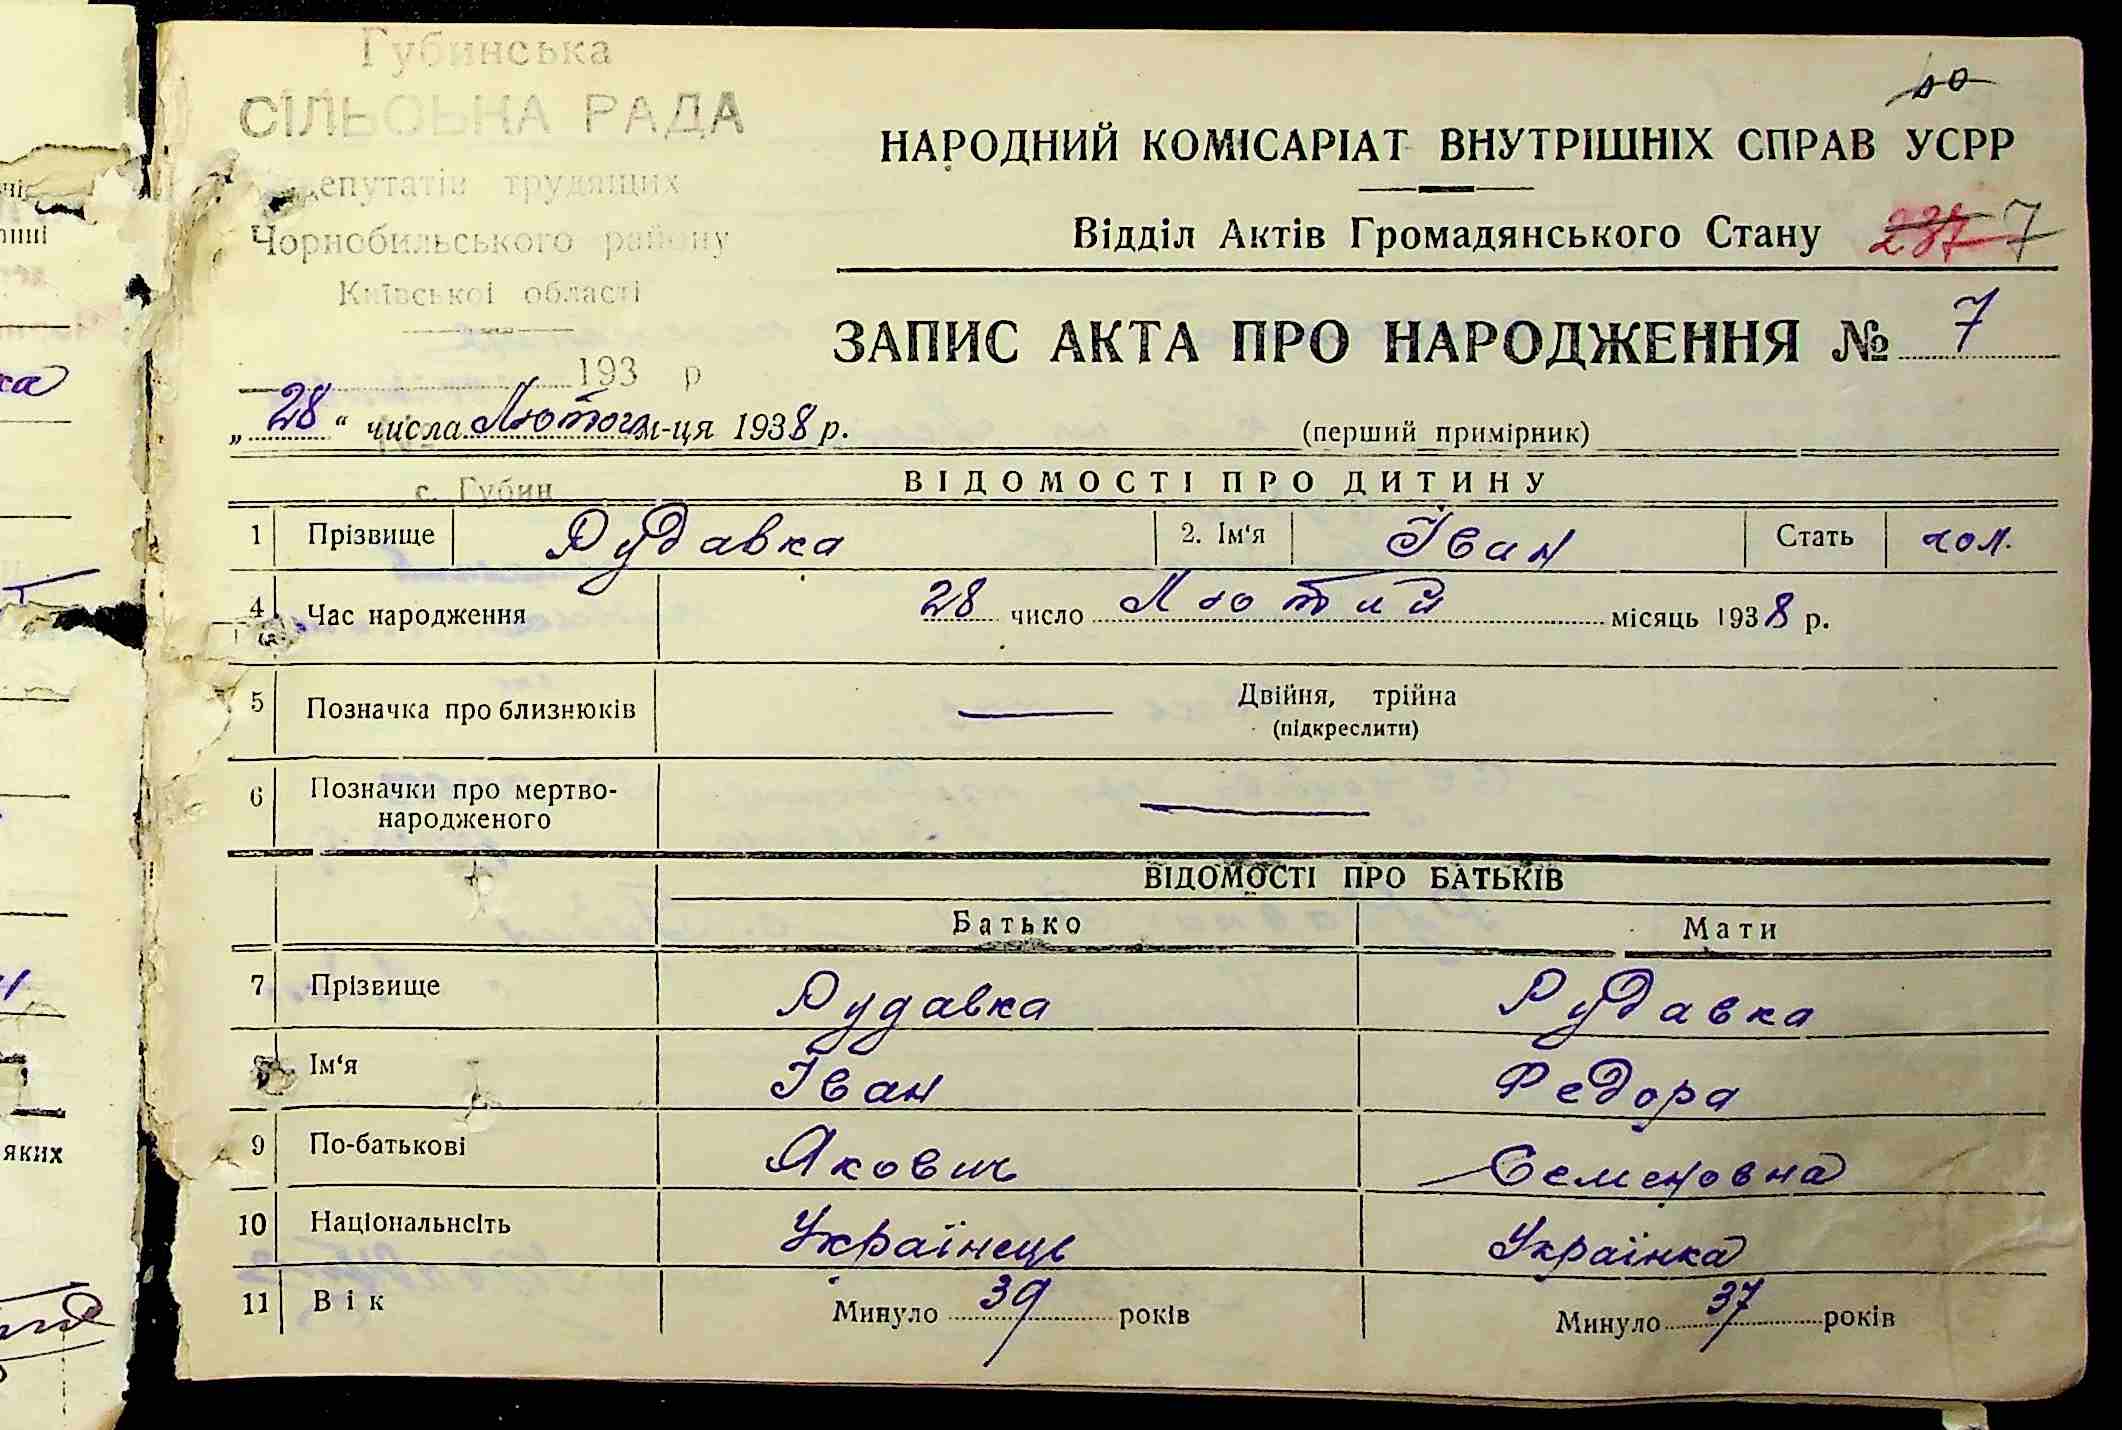 Губинська
СІЛЬСЬКА РАДА
депутатів трудящих
Чорнобильського району
Київської області
193 р
40
НАРОДНИЙ КОМІСАРІАТ ВНУТРІШНІХ СПРАВ УСРР
Відділ Актів Громадянського Стану 237 7
ЗАПИС АКТА ПРО НАРОДЖЕННЯ № 7
„28“ числа Лютого м-ця 1938 р. (перший примірник)
с. Губин
ВІДОМОСТІ ПРО ДИТИНУ
1 Прізвище Рудавка 2. Ім'я Іван Стать чол.
4 Час народження 28 число Лютий місяць 1938 р.
5 Позначка про близнюків — Двійня, трійна
(підкреслити)
6 Позначки про мертво-
народженого —
ВІДОМОСТІ ПРО БАТЬКІВ
Батько Мати
7 Прізвище Рудавка Рудавка
8 Ім'я Іван Федора
9 По-батькові Якович Семеновна
10 Національнсіть Українець Українка
11 Вік Минуло 39 років Минуло 37 років
яких